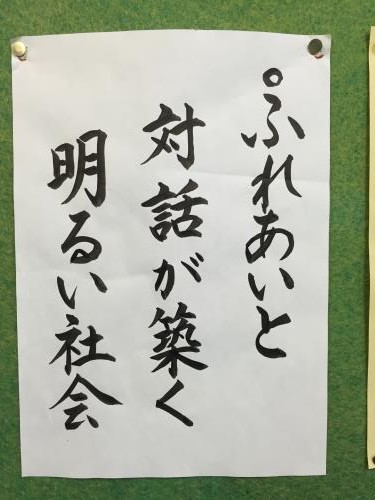 ○ふれあいと
対話が築く
明るい社会